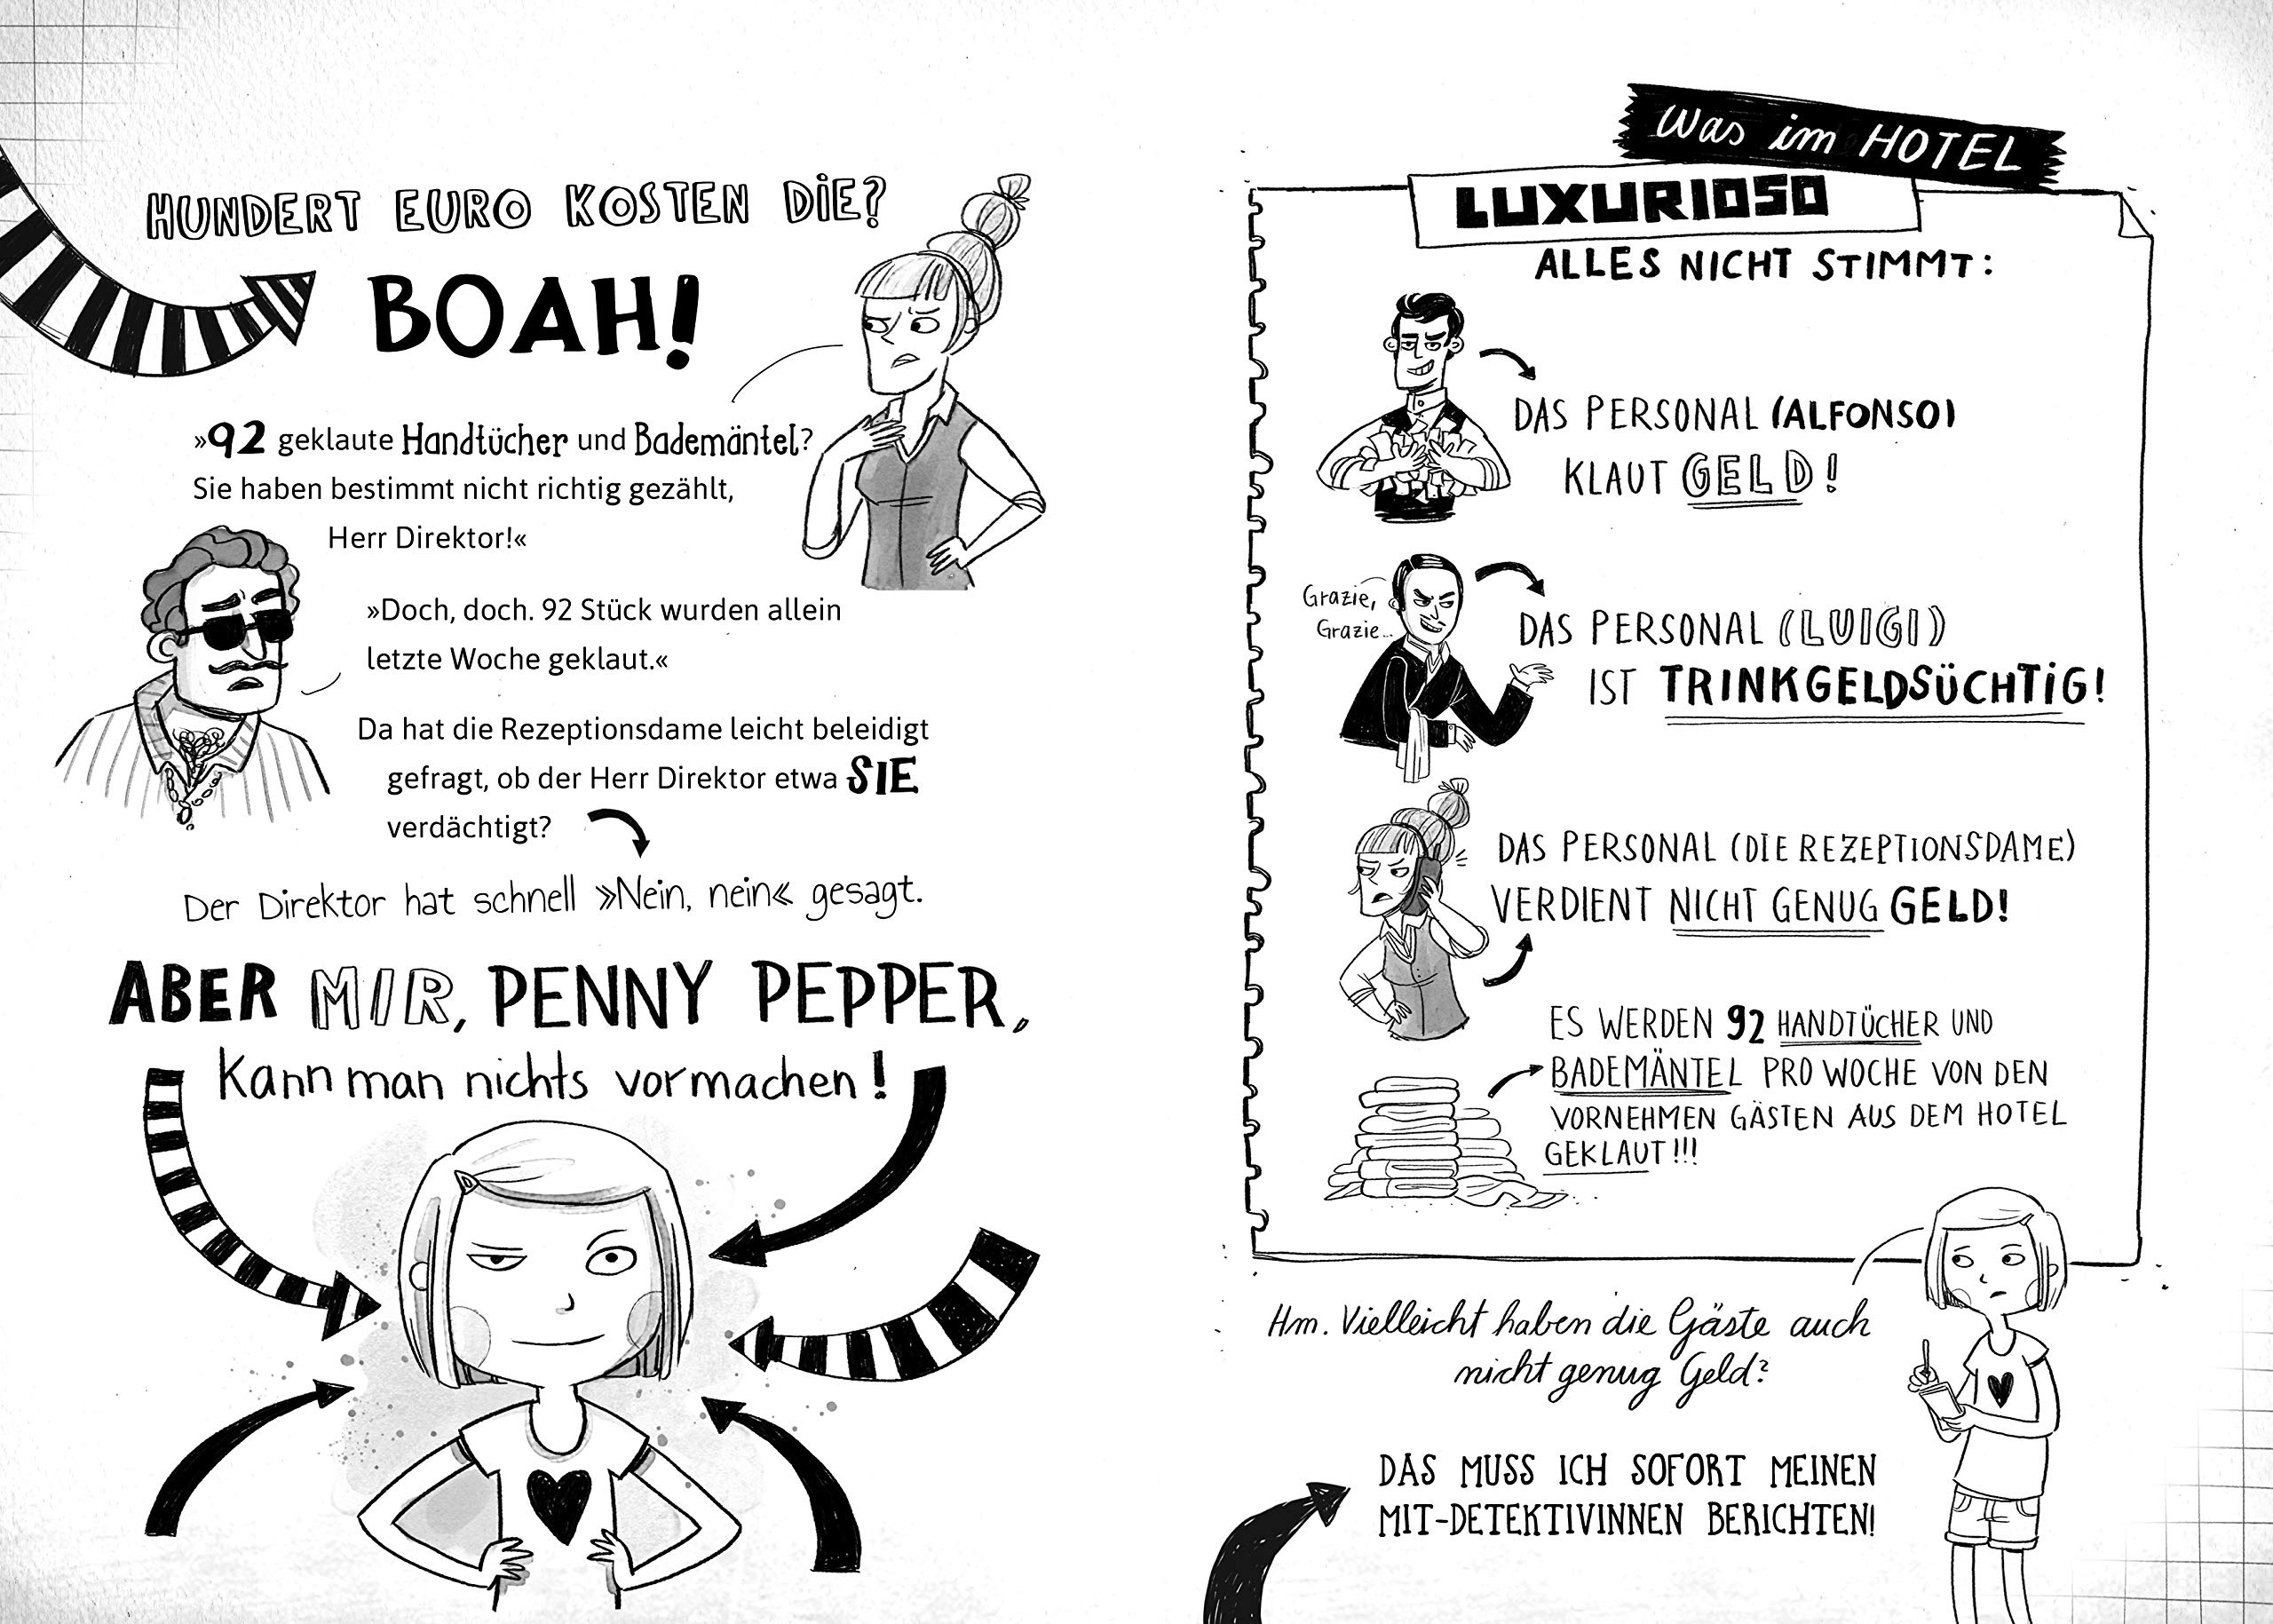 HUNDERT EURO KOSTEN DIE?
BOAH!
»92 geklaute Handtücher und Bademäntel?
Sie haben bestimmt nicht richtig gezählt,
Herr Direktor!«
»Doch, doch. 92 Stück wurden allein
letzte Woche geklaut.«
Da hat die Rezeptionsdame leicht beleidigt
gefragt, ob der Herr Direktor etwa SIE
verdächtigt?
Der Direktor hat schnell »Nein, nein« gesagt.
ABER MIR, PENNY PEPPER,
kann man nichts vormachen!
Was im HOTEL
LUXURIOSO
ALLES NICHT STIMMT:
DAS PERSONAL (ALFONSO)
KLAUT GELD!
Grazie,
Grazie...
DAS PERSONAL (LUIGI)
IST TRINKGELDSÜCHTIG!
DAS PERSONAL (DIE REZEPTIONSDAME)
VERDIENT NICHT GENUG GELD!
ES WERDEN 92 HANDTÜCHER UND
BADEMÄNTEL PRO WOCHE VON DEN
VORNEHMEN GÄSTEN AUS DEM HOTEL
GEKLAUT!!!
Hm. Vielleicht haben die Gäste auch
nicht genug Geld?
DAS MUSS ICH SOFORT MEINEN
MIT-DETEKTIVINNEN BERICHTEN!